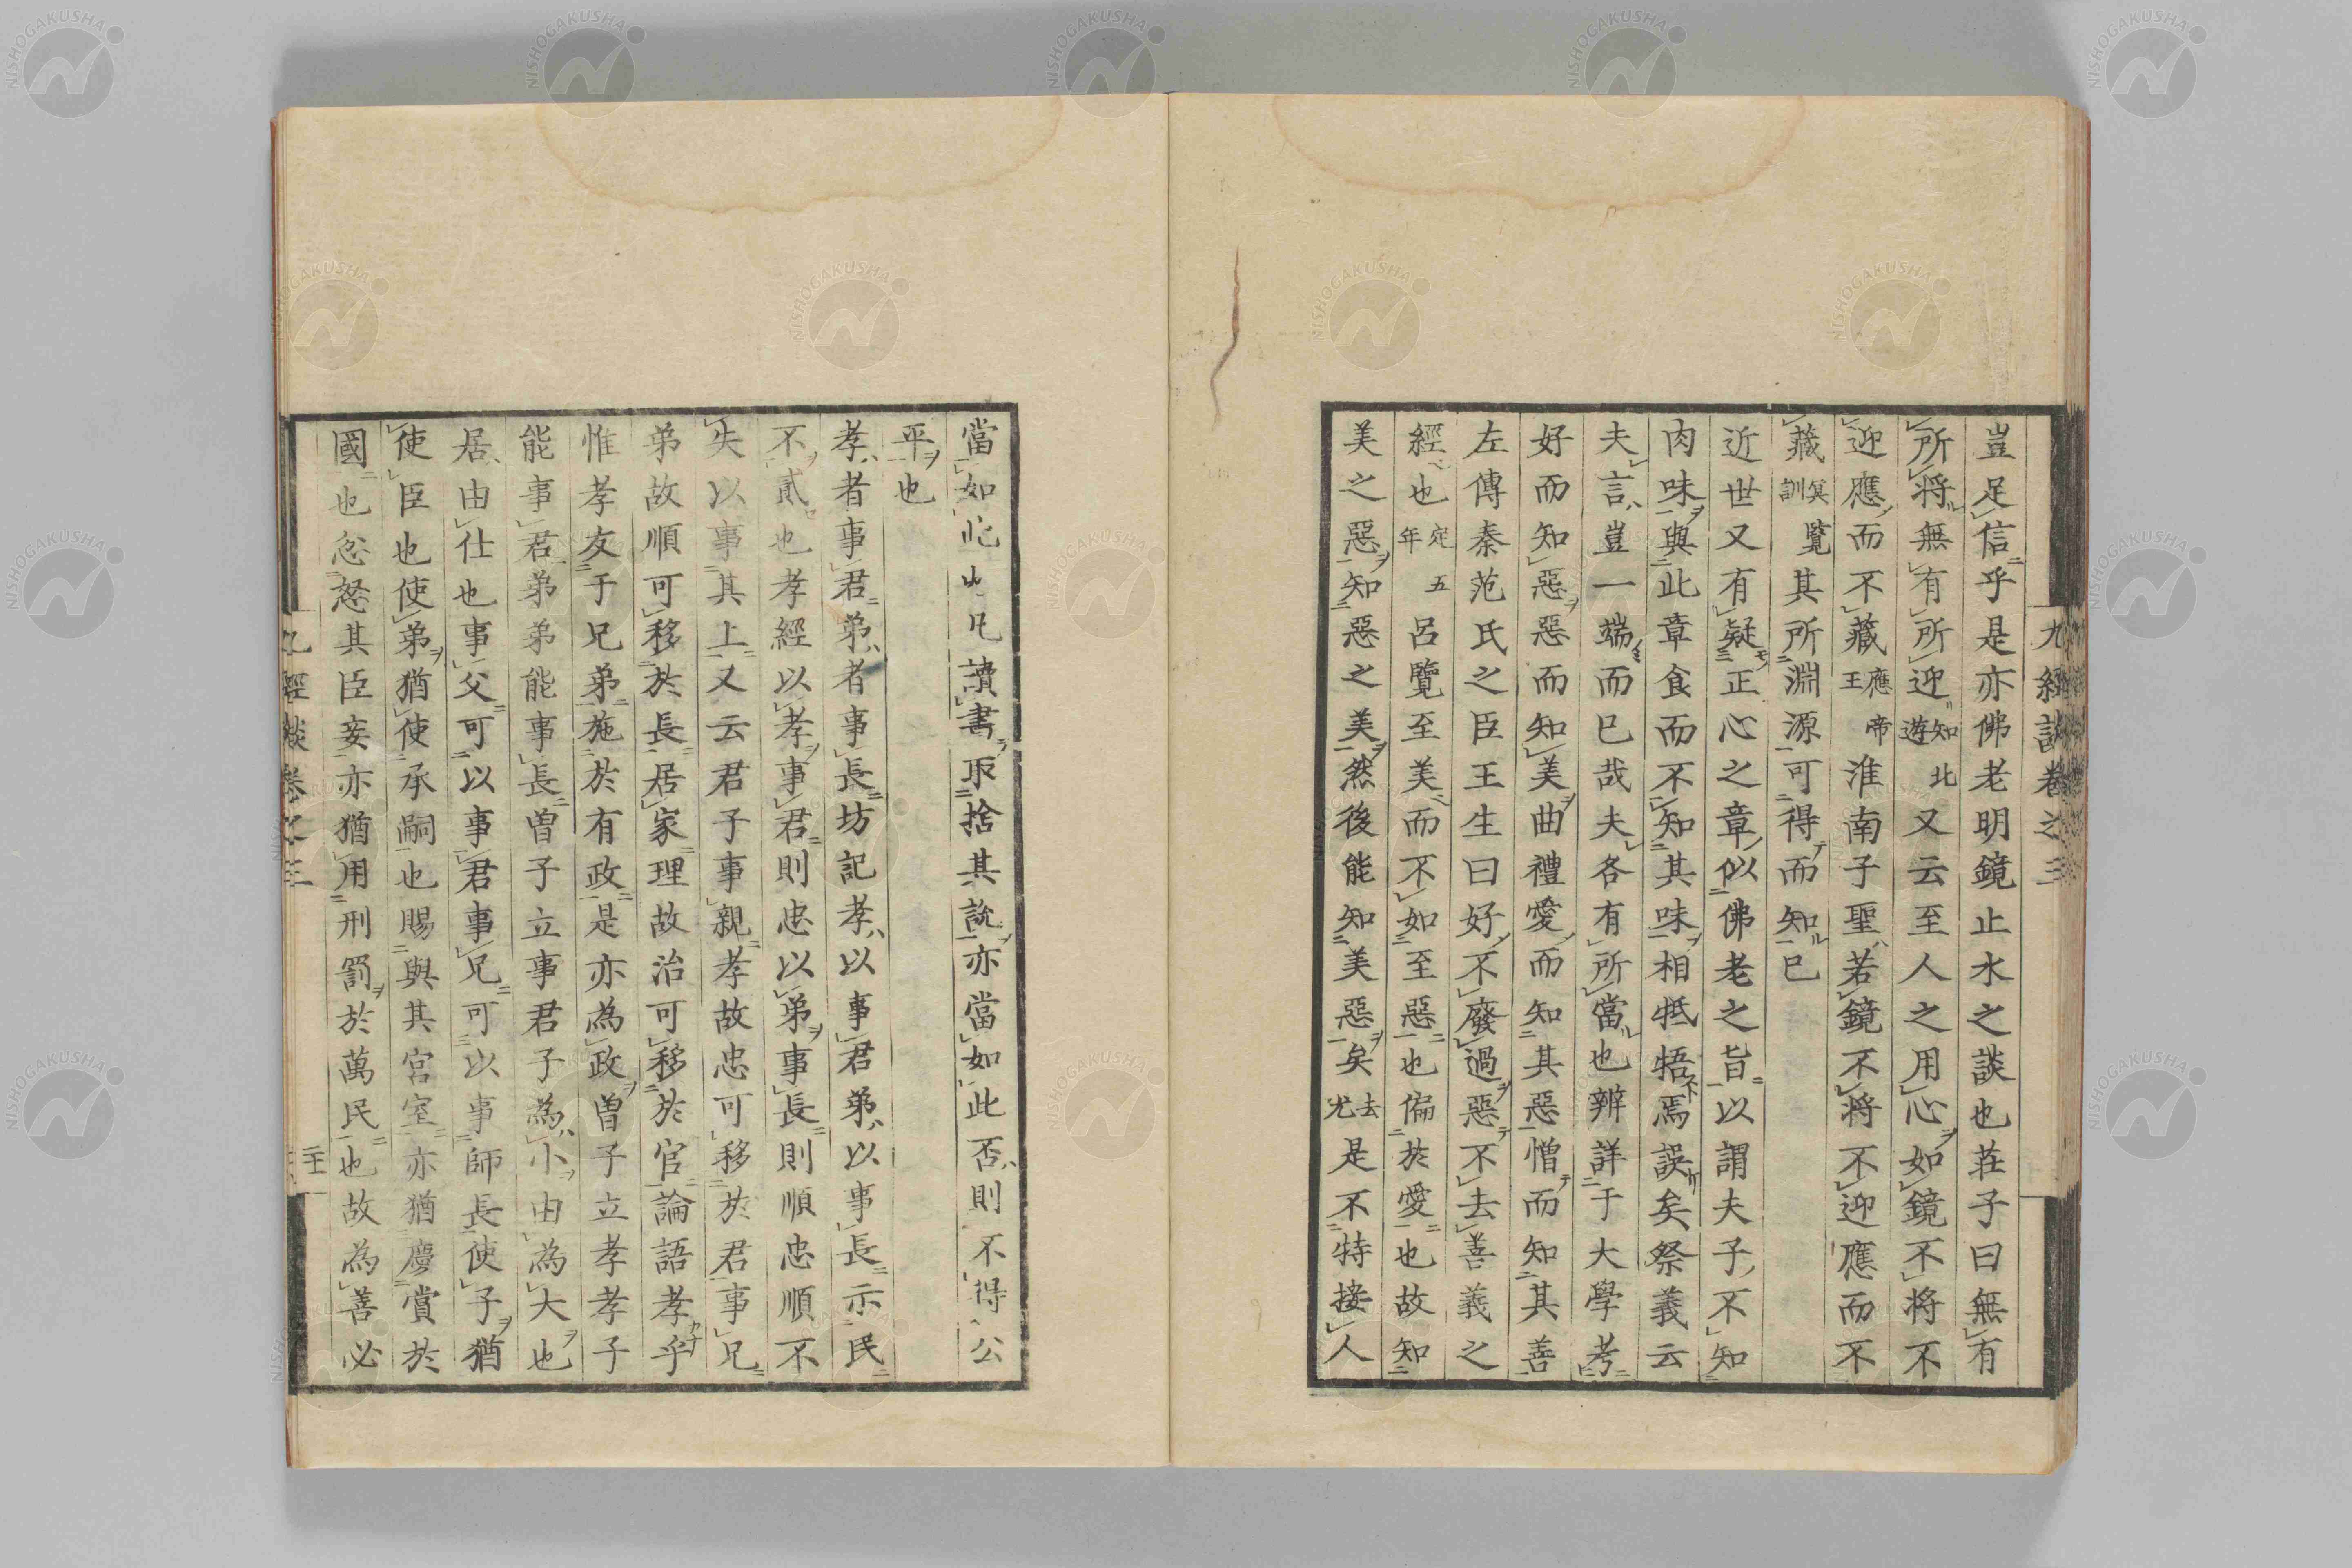 九經談卷之三
豈足信乎是亦佛老明鏡止水之談也莊子曰無有
所將無有所迎知北遊又云至人之用心如鏡不將不
迎應而不藏應帝王淮南子聖若鏡不將不迎應而不
藏覽冥訓其所淵源可得而知已
近世又有疑正心之章似佛老之旨以謂夫子不知
肉味與此章食而不知其味相牴牾焉誤矣祭義云
夫言豈一端而已哉夫各有所當也辨詳于大學考
好而知惡惡而知美曲禮愛而知其惡憎而知其善
左傳秦范氏之臣王生曰好不廢過惡不去善義之
經也定五年呂覽至美而不如至惡也偏於愛也故知
美之惡知惡之美然後能知美惡矣去尤是不特接人
當如此也凡讀書取捨其說亦當如此否則不得公
平也
孝者事君弟者事長坊記孝以事君弟以事長示民
不貳也孝經以孝事君則忠以弟事長則順忠順不
失以事其上又云君子事親孝故忠可移於君事兄
弟故順可移於長居家理故治可移於官論語孝乎
惟孝友于兄弟施於有政是亦為政曾子立孝孝子
能事君弟弟能事長曾子立事君子為小由為大也
居由仕也事父可以事君事兄可以事師長使子猶
使臣也使弟猶使承嗣也賜與其宮室亦猶慶賞於
國也忿怒其臣妾亦猶用刑罰於萬民也故為善必
九經談卷之三
二十一
NISHOGAKUSHA